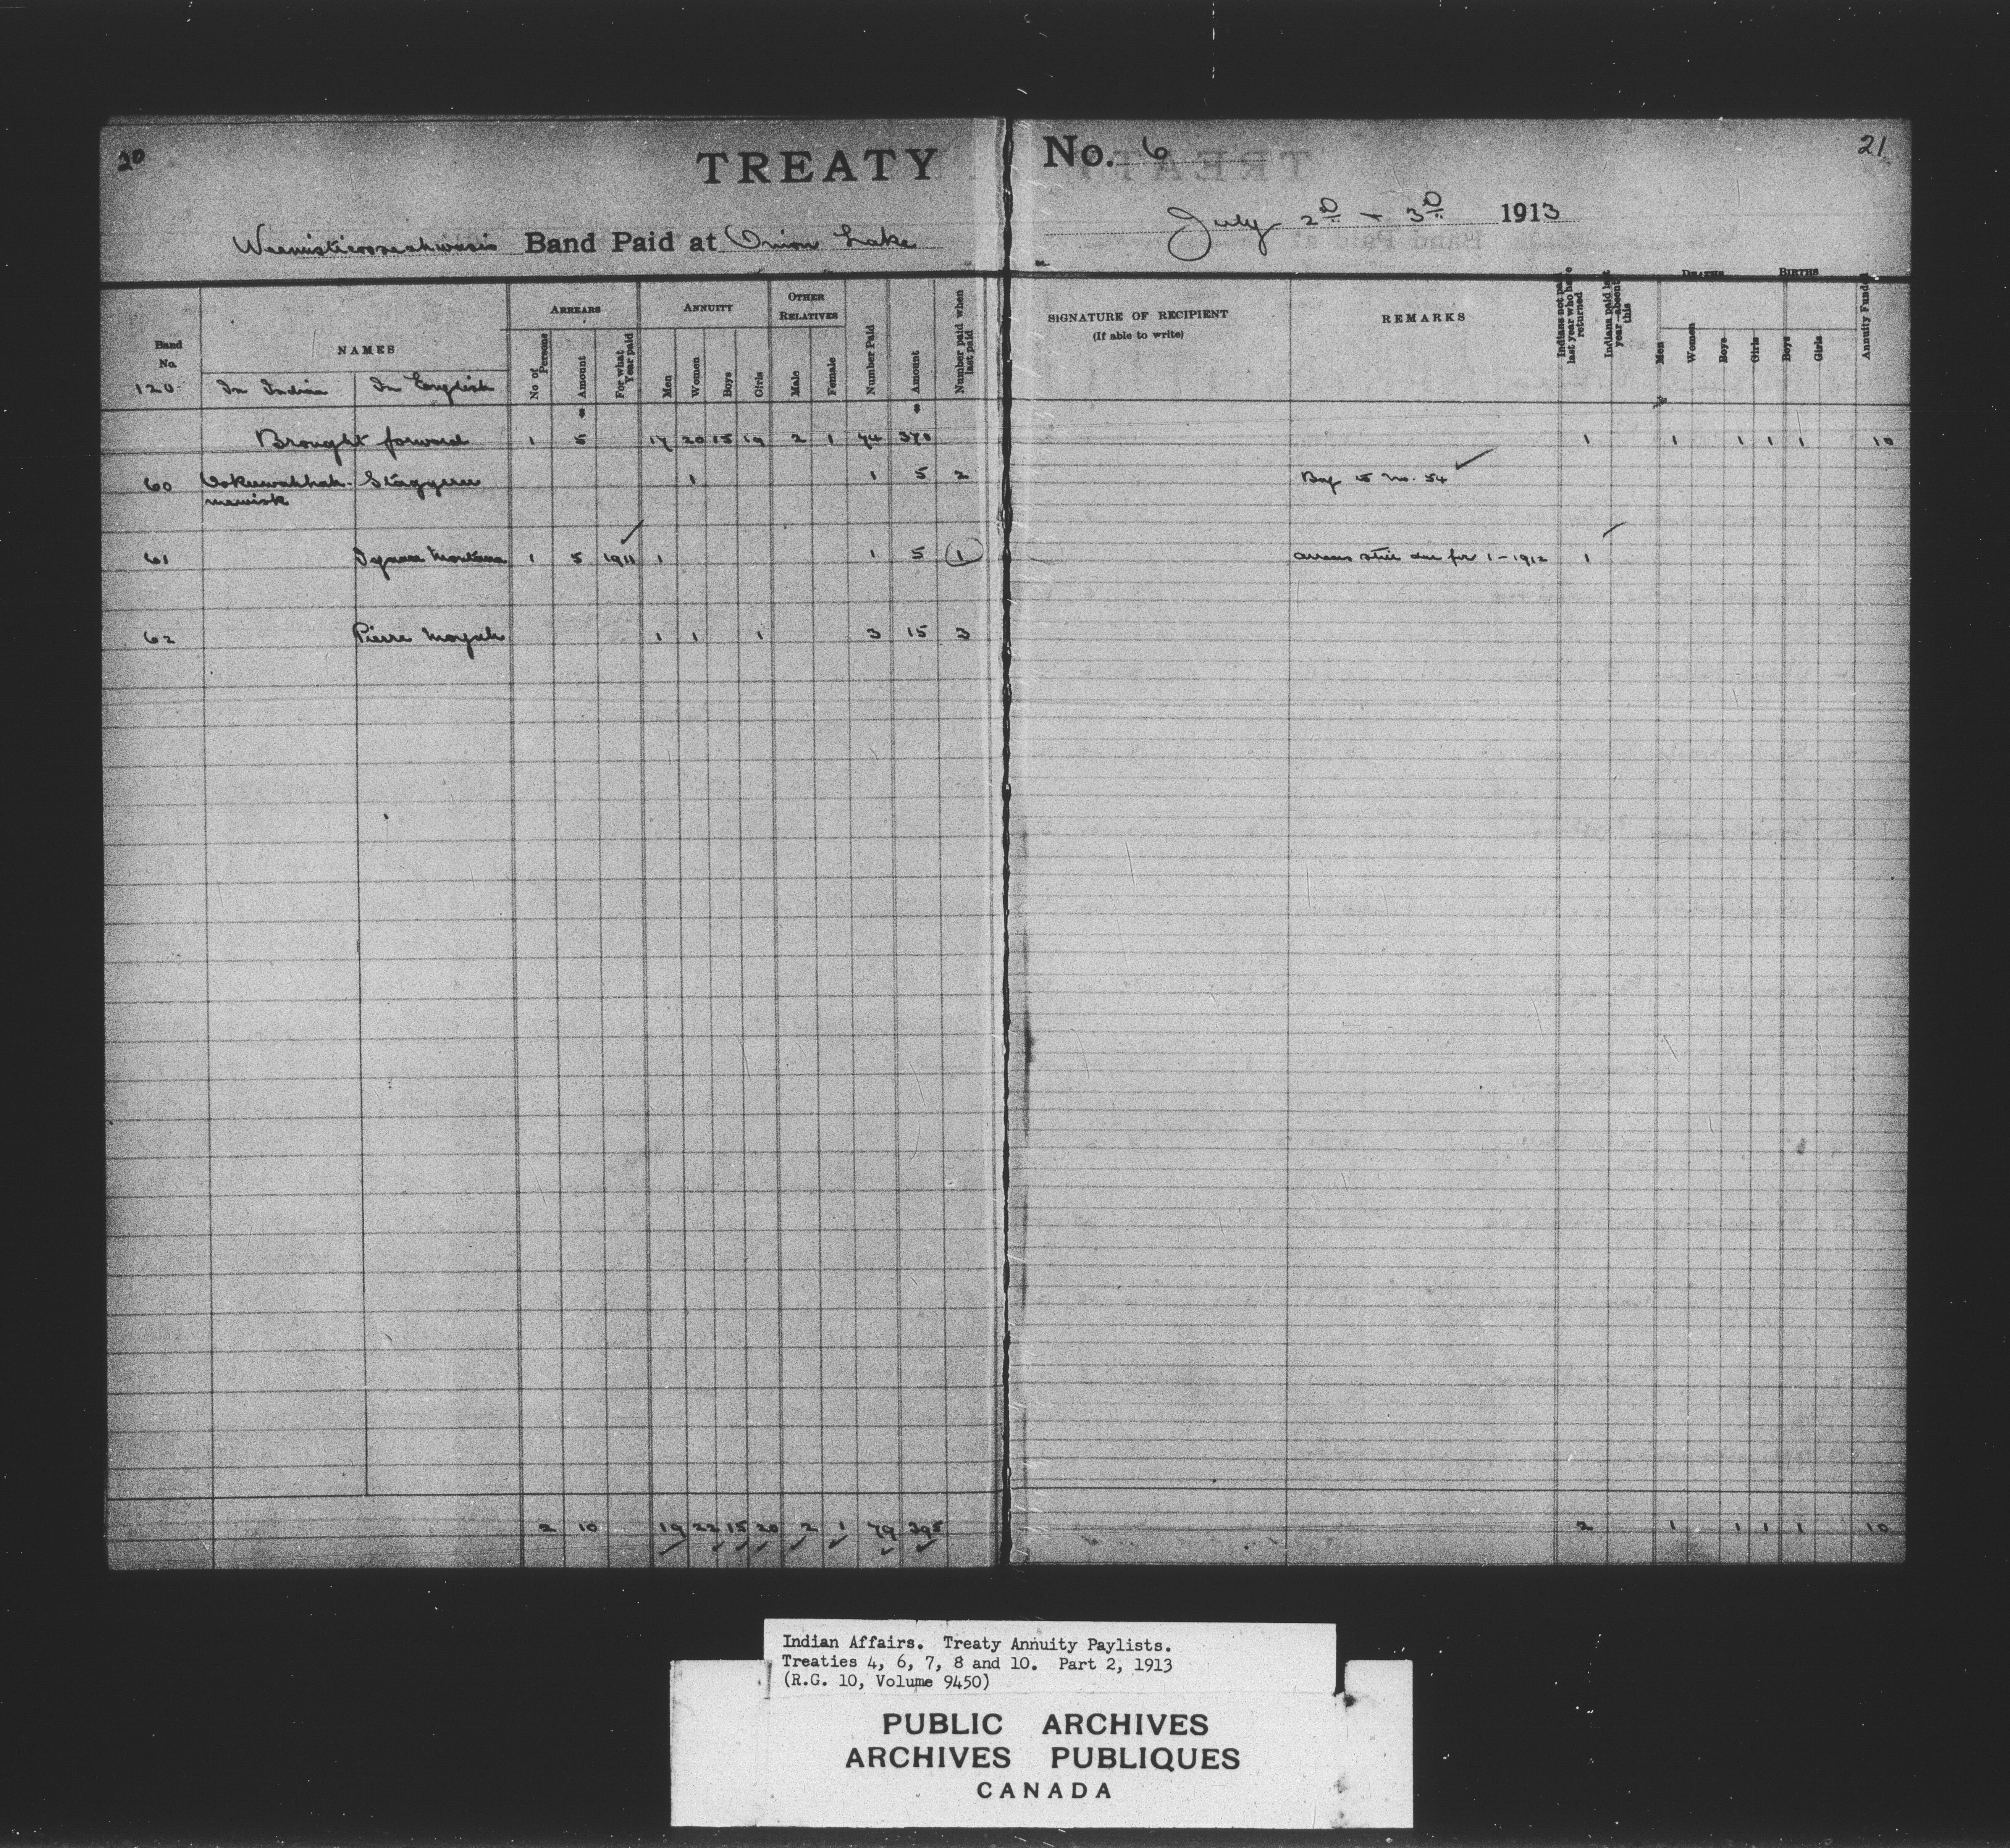 20
TREATY No. 6
21
Weemisticooseahwasis Band Paid at Onion Lake
July 2D & 3D 1913
Band No. 120
NAMES
In Indian
In English
ARREARS
No of Persons
Amount
For what Year paid
ANNUITY
Men
Women
Boys
Girls
OTHER RELATIVES
Male
Female
Number Paid
Amount
Number paid when last paid
SIGNATURE OF RECIPIENT
(If able to write)
REMARKS
Indians not paid last year who have returned
Indians paid last year—absent this
DEATHS
Men
Women
Boys
Girls
BIRTHS
Boys
Girls
Annuity Funded
Brought forward 1 5 17 20 15 19 2 1 74 370 1 1 1 1 1 10
60 1 1 5 2 No. 54
61 Montana 1 5 1911 1 1 5 1 arrears still due for 1-1912 1
62 Pierre Moyah 1 1 1 3 15 3
2 10 19 22 15 20 2 1 79 395 2 1 1 1 1 10
Indian Affairs. Treaty Annuity Paylists.
Treaties 4, 6, 7, 8 and 10. Part 2, 1913
(R.G. 10, Volume 9450)
PUBLIC ARCHIVES
ARCHIVES PUBLIQUES
CANADA